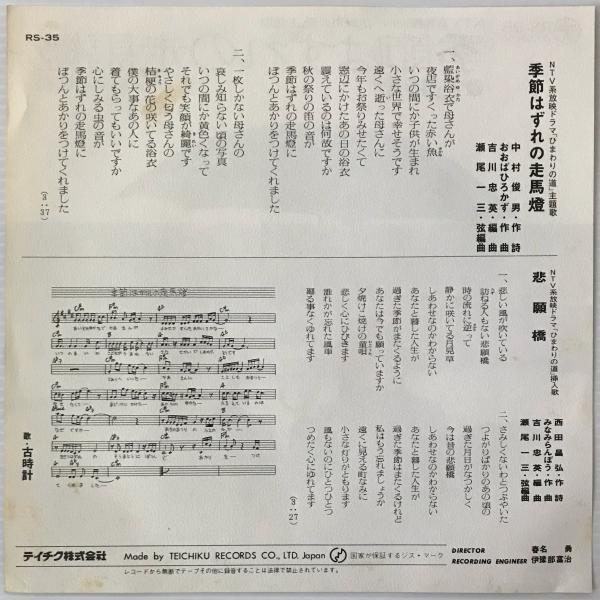 RS-35
NTV系放映ドラマ「ひまわりの道」主題歌
季節はずれの走馬燈
中村俊男・作詩
おおばひろかず・作曲
吉川忠英・編曲
瀬尾一三・弦編曲
一、藍染浴衣で母さんが
夜店ですくった赤い魚
いつの間にか子供が生まれ
小さな世界で幸せそうです
遠くへ逝った母さんに
今年もお祭りみせたくて
窓辺にかけたあの日の浴衣
震えているのは何故ですか
秋の祭りの笛の音が
季節はずれの走馬燈に
ぽつんとあかりをつけてくれました
二、一枚しかない母さんの
哀しみ知らない娘の写真
いつの間にか黄色くなって
それでも笑顔が綺麗です
やさしく匂う母さんの
桔梗の花の咲いてる浴衣
僕の大事なあの人に
着てもらってもいいですか
心にしみる虫の音が
季節はずれの走馬燈に
ぽつんとあかりをつけてくれました
(3:37)
NTV系放映ドラマ「ひまわりの道」挿入歌
悲願橋
西田昌弘・作詩
みなみらんぼう・作曲
吉川忠英・編曲
瀬尾一三・弦編曲
一、悲しい風が吹いている
訪ねる人もない悲願橋
時の流れに逆って
静かに咲いてる月見草
しあわせなのかわからない
あなたと暮した人生が
過ぎた季節がまたくるように
あなたは今でも願っていますか
夕焼け小焼けの童唄
悲しく心にひびきます
誰れかが忘れた風車
廻る事なくゆれてます
二、さみしくないわとつぶやいた
つよがりばかりのあの頃の
過ぎた月日がなつかしく
今は昔の悲願橋
しあわせなのかわからない
あなたと暮した人生が
過ぎた季節はまたくるけれど
私はもう忘れましょうか
遠くに見える町なみに
小さな灯りがともります
風もないのにひとつひとつ
つめたく心にゆれてます
(3:27)
季節はずれの走馬燈
歌・古時計
テイチク株式会社
Made by TEICHIKU RECORDS CO., LTD. Japan
国家が保証するジス・マーク
レコードから無断でテープその他に録音することは法律で禁止されています。
DIRECTOR 春名 勇
RECORDING ENGINEER 伊豫部富治